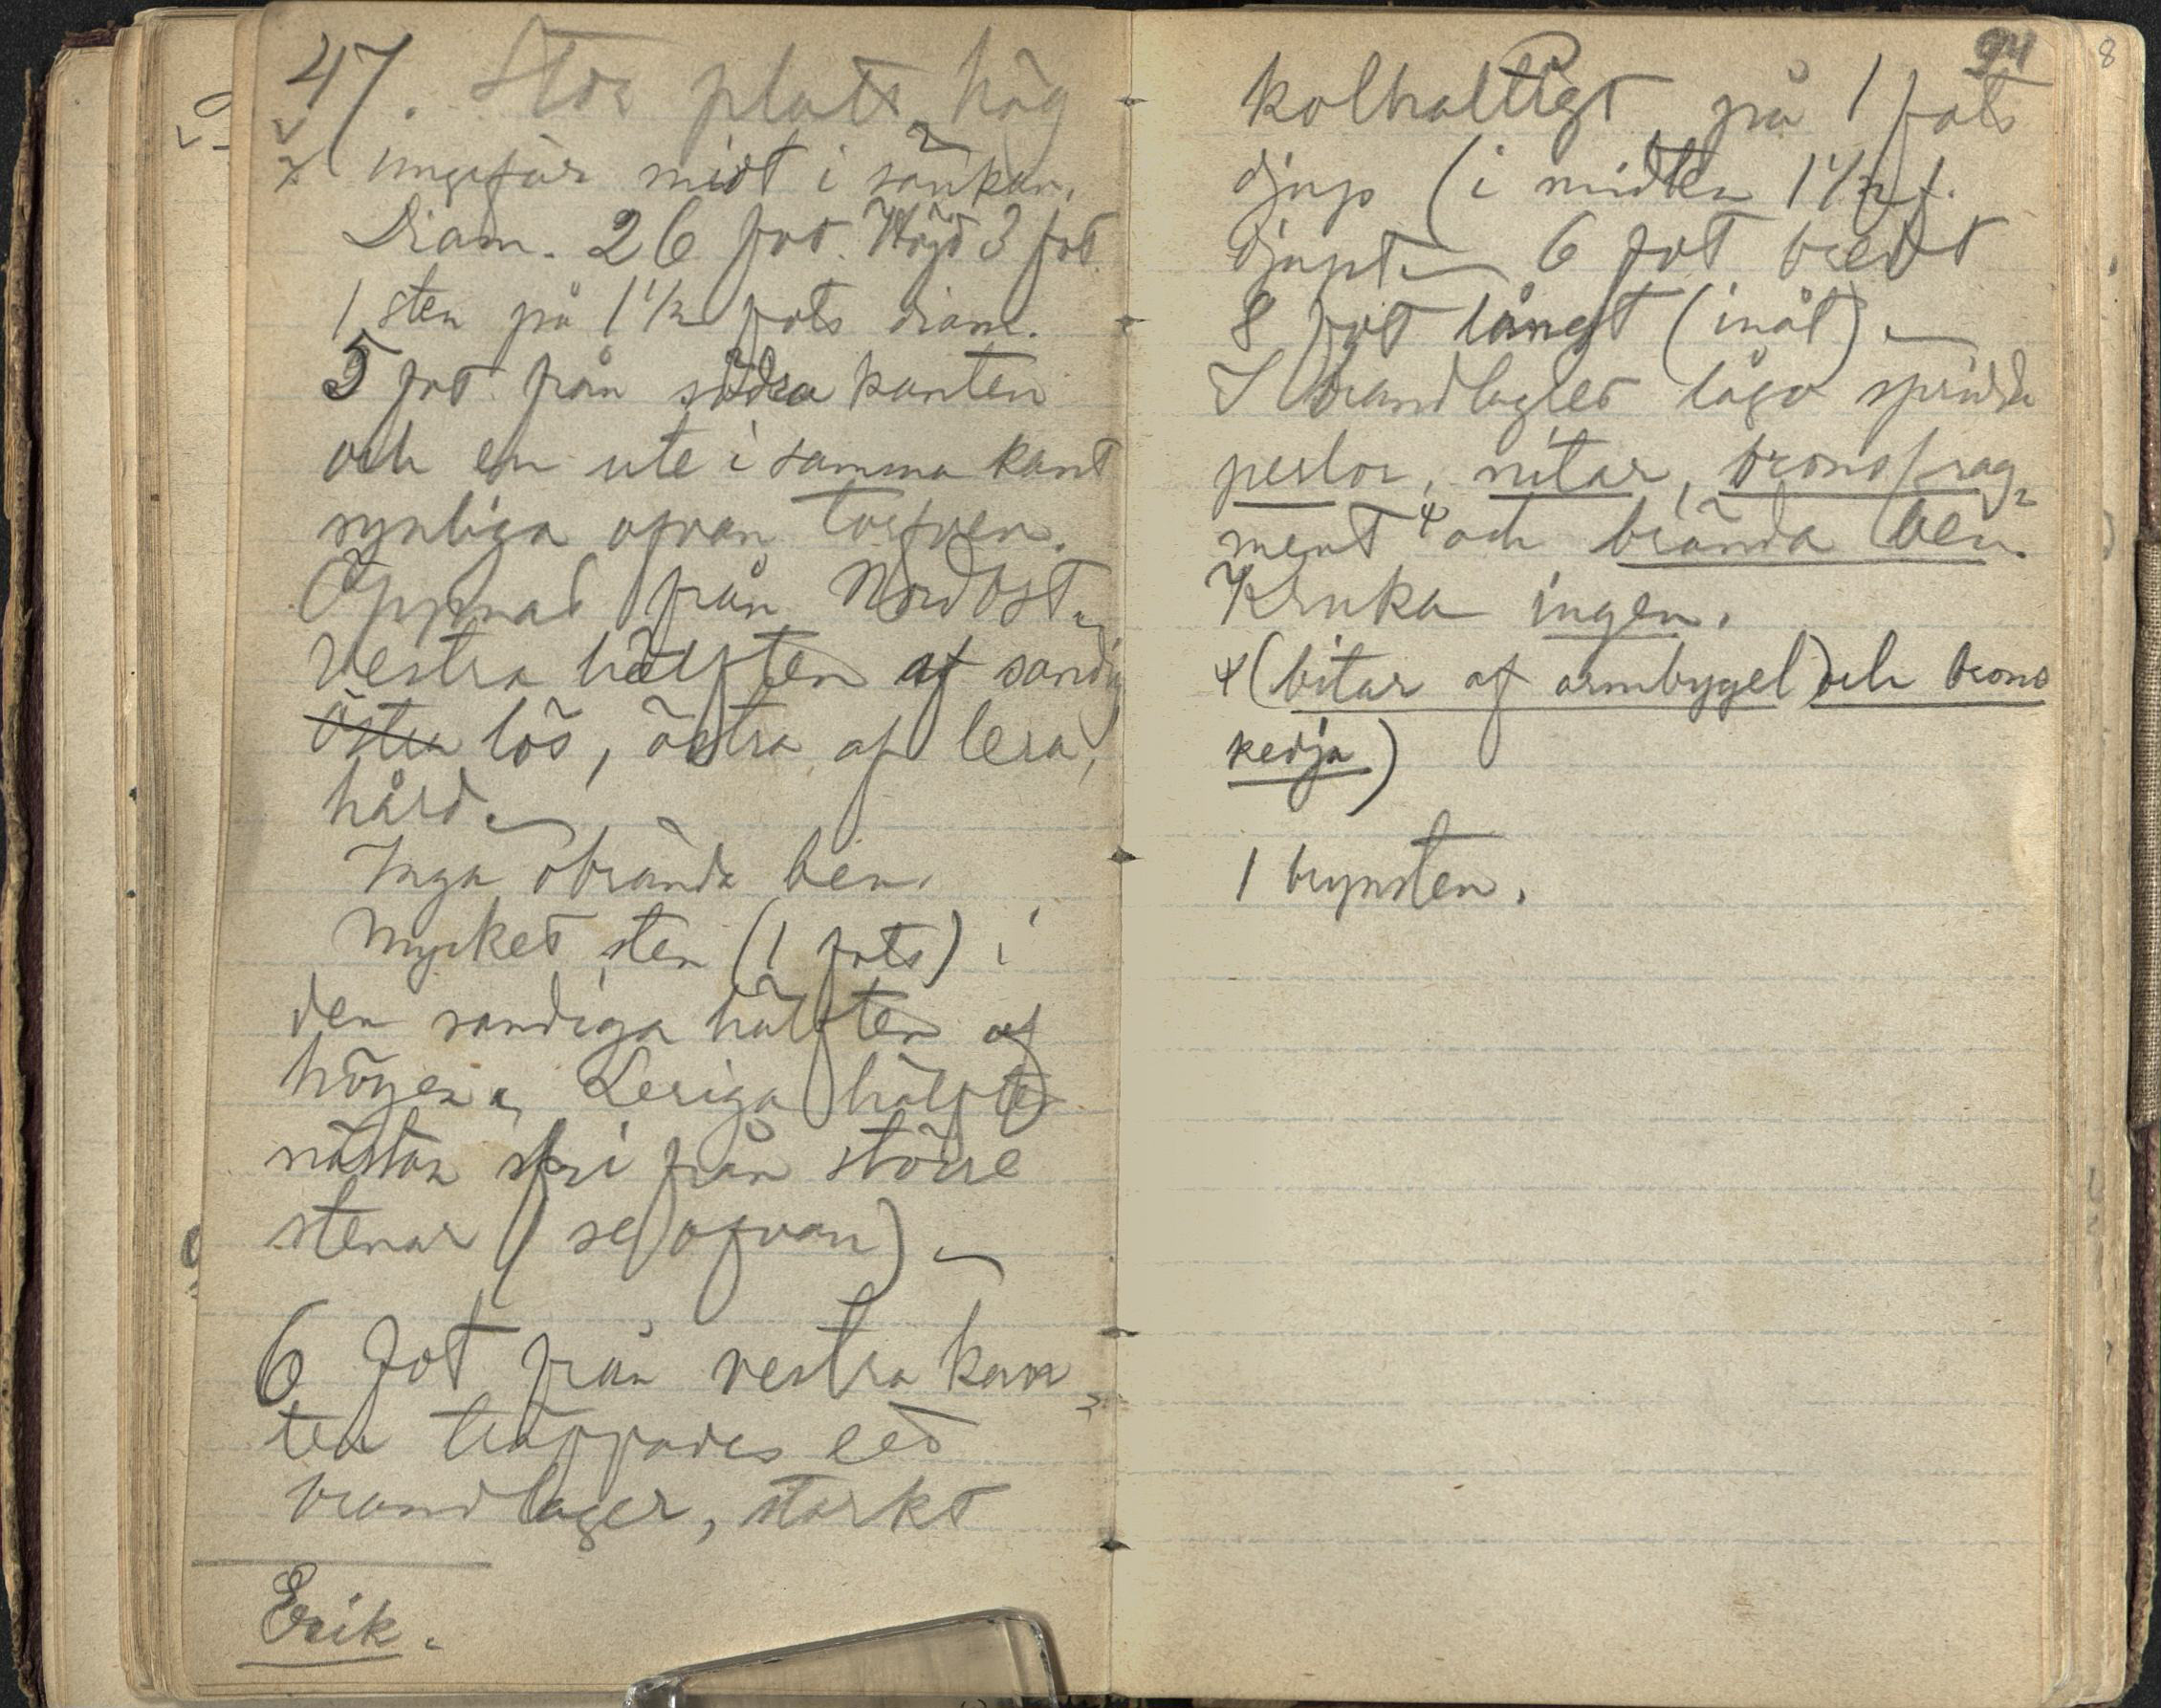 47. Stor platt hög
ungefär midt i sänkan.
Diam. 26 fot. Höjd 3 fot.
1 sten på 1 1/2 fots diam.
5 fot från södra kanten
och en ute i samma kant
synliga ofvan torfven.
Öppnad från Nordost.
Vestra hälften af sandig
Östra lös, östra af lera,
hård.
Inga obrända ben.
Mycket sten (1 fots) i
den sandiga hälften af
högen. Leriga hälften
nästan fri från större
stenar (se ofvan)
6 fot från vestra kan-
ten träppades ett
brandlager, starkt
Erik.
94
kolhaltigt på 1 fots
djup (i midten 1 1/2 f.
djupt 6 fot bredt
8 fot långt (inåt)
I brandlagret lågo spridda
perlor, nitar, bronsfrag-
ment och brända ben.
Kruka ingen.
(bitar af armbygel) och brons
kedja)
1 brynsten.
8